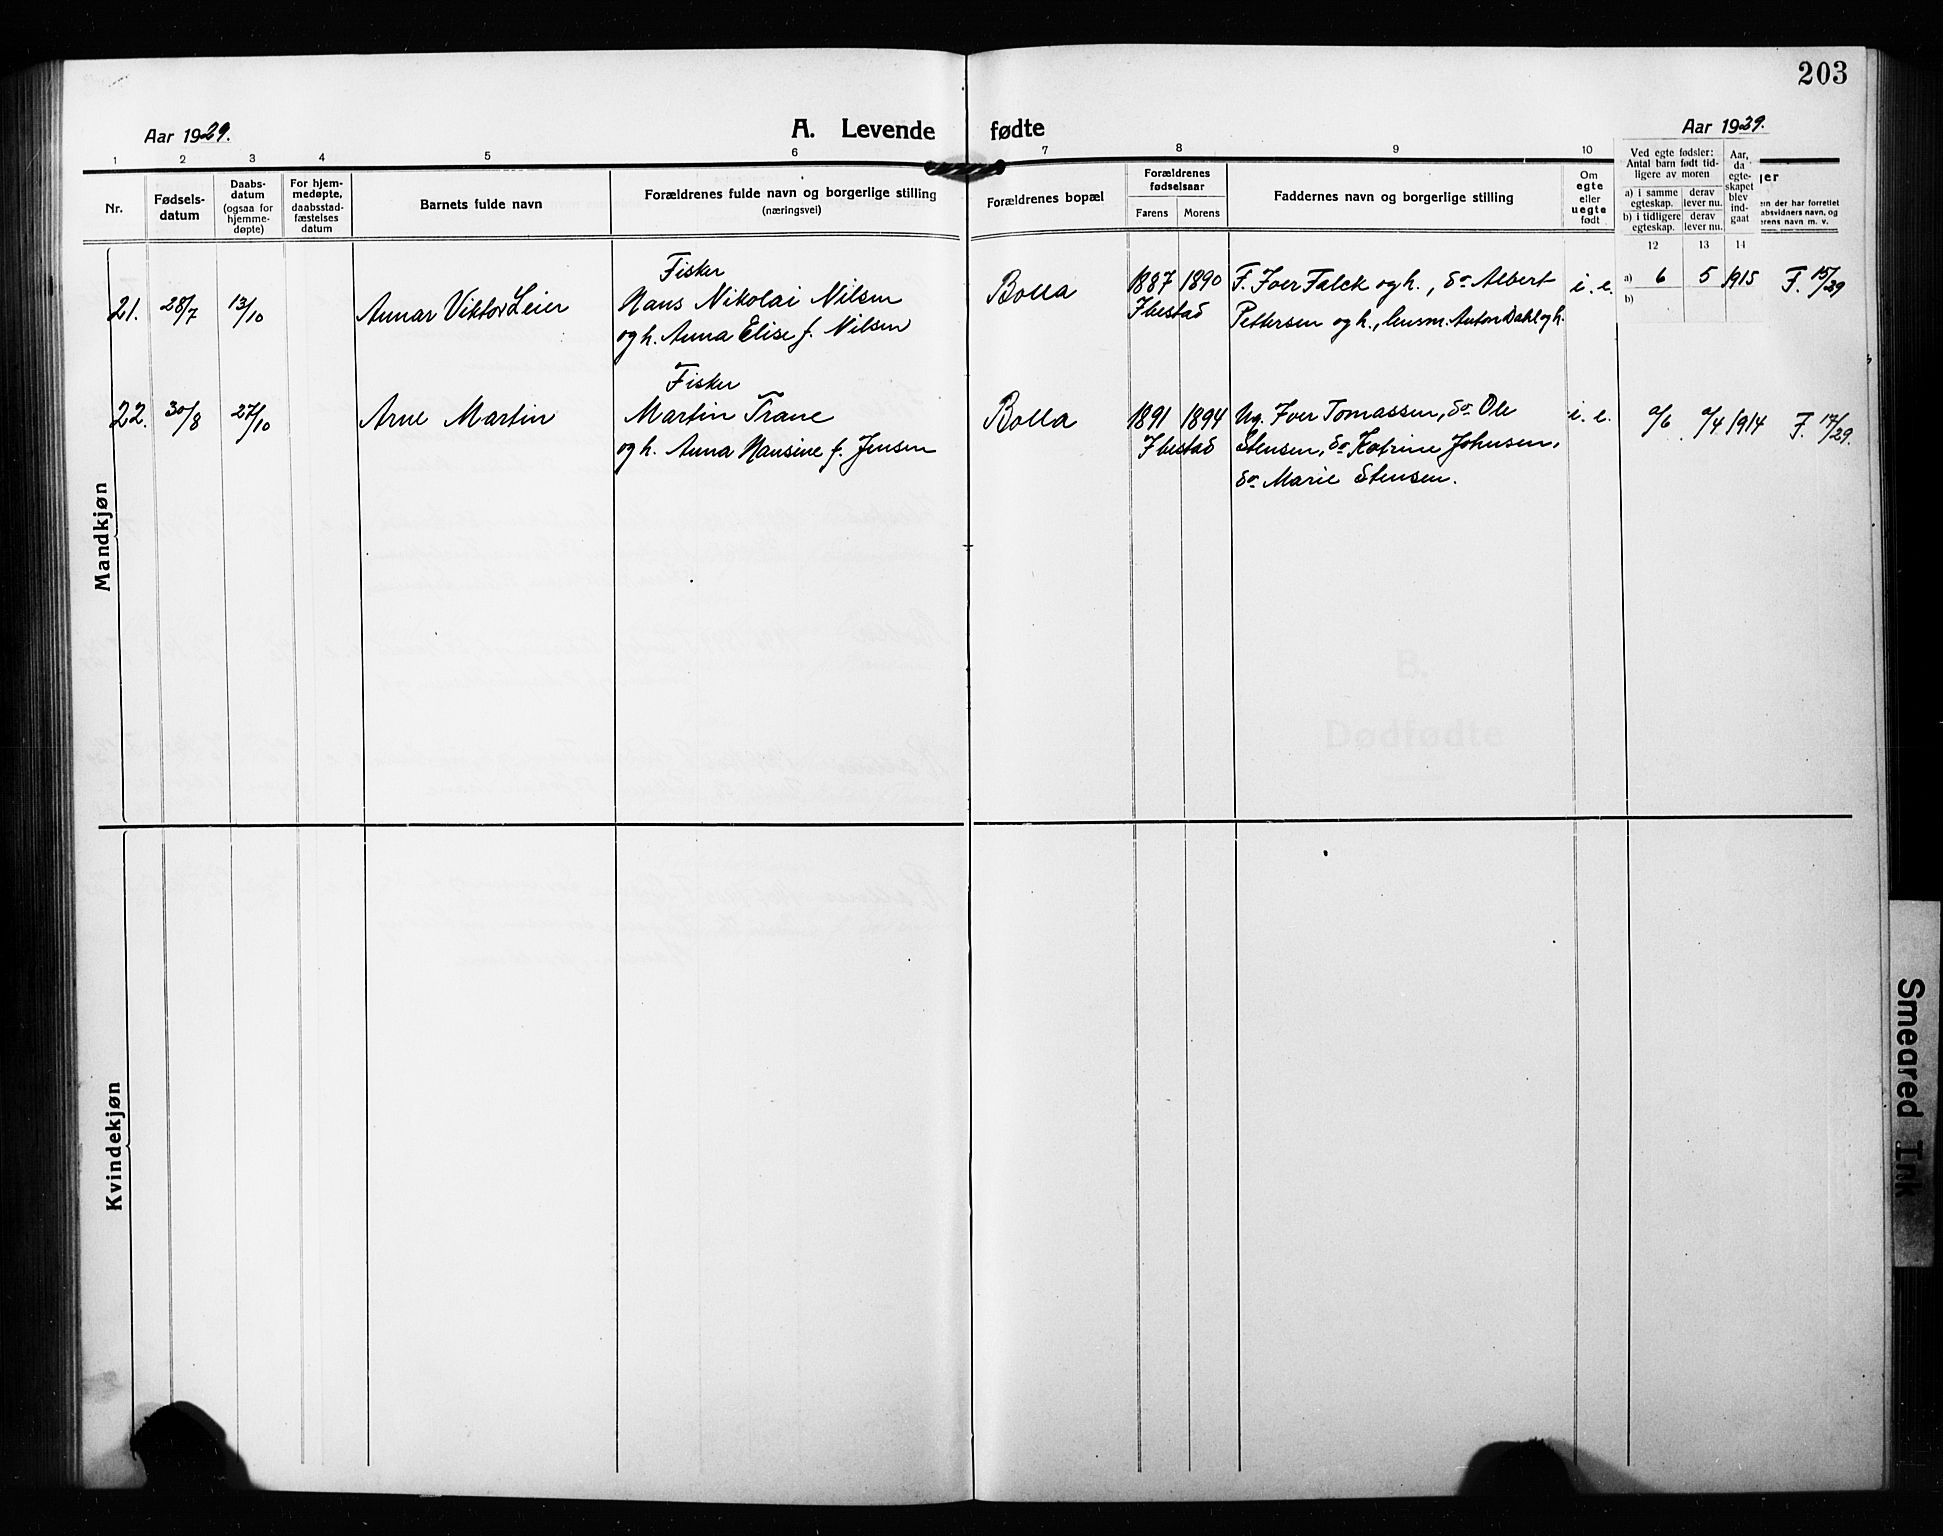 203
Aar 1929.
A. Levende fødte
Aar 1929.
1 2 3 4 5 6 7 8 9 10
Nr.
Fødsels-
datum
Daabs-
datum
(ogsaa for
hjemme-
døpte)
For hjem-
medøpte,
daabsstad-
fæstelses
datum
Barnets fulde navn
Forældrenes fulde navn og borgerlige stilling
(næringsvei)
Forældrenes bopæl
Forældrenes
fødselsaar
Farens Morens
Faddernes navn og borgerlige stilling
Om
egte
eller
uegte
født
Ved egte fødsler:
Antal barn født tid-
ligere av moren
a) i samme
egteskap.
derav
lever nu.
b) i tidligere
egteskap.
derav
lever nu.
Aar,
da
egte-
skapet
blev
ind-
gaat
12 13 14
ger
en der har forrettet
absvidners navn, og
erens navn m. v.
Mandkjøn
21. 28/7 13/10 Annar Viktor Leier
Fisker
Hans Nikolai Nilsen
og h. Anna Elise f. Nilsen
Bolla
1887 1890
Ibestad
F. Iver Falck og h., do Albert
Pettersen og h., lensm. Anton Dahl og h.
i. e.
a) 6 5 1915 F. 15/29
b)
22. 30/8 27/10 Arne Martin
Fisker
Martin Trane
og h. Anna Hansine f. Jensen
Bolla
1891 1894
Ibestad
Ug. Iver Tomassen, do Ole
Stensen, do Katrine Johnsen,
do Marie Stensen.
i. e.
a/6 a/4 1914 F. 17/29.
B.
Dødfødte
Kvindekjøn
Smeared Ink